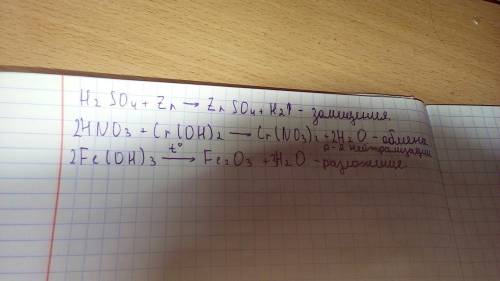 H₂SO₄ + Zn → ZnSO₄ + H₂↑ - замищения.
2HNO₃ + Cr(OH)₂ → Cr(NO₃)₂ + 2H₂O - обмена
р-я нейтрализации
2Fe(OH)₃ t°→ Fe₂O₃ + 3H₂O - разложение